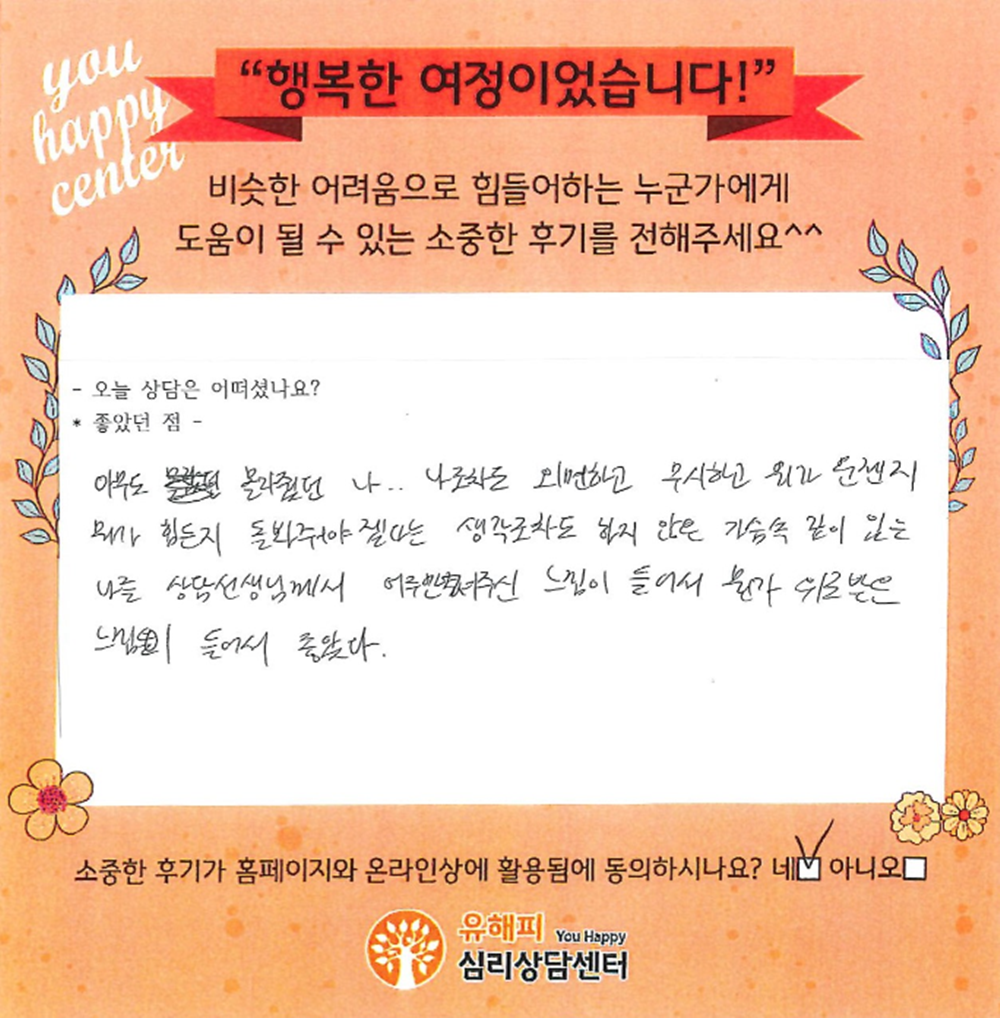 you
happy
center
“행복한 여정이었습니다!”
비슷한 어려움으로 힘들어하는 누군가에게
도움이 될 수 있는 소중한 후기를 전해주세요^^
- 오늘 상담은 어떠셨나요?
* 좋았던 점 -
아무도 몰라줬던 나.. 나조차도 외면하고 무시하고 뭐가 문젠지
뭐가 힘든지 돌봐줘야겠다는 생각조차도 하지 않은 가슴속 깊이 있는
나를 상담선생님께서 어루만져주신 느낌이 들어서 뭔가 위로받은
느낌이 들어서 좋았다.
소중한 후기가 홈페이지와 온라인상에 활용됨에 동의하시나요? 네 아니오
유해피 You Happy
심리상담센터